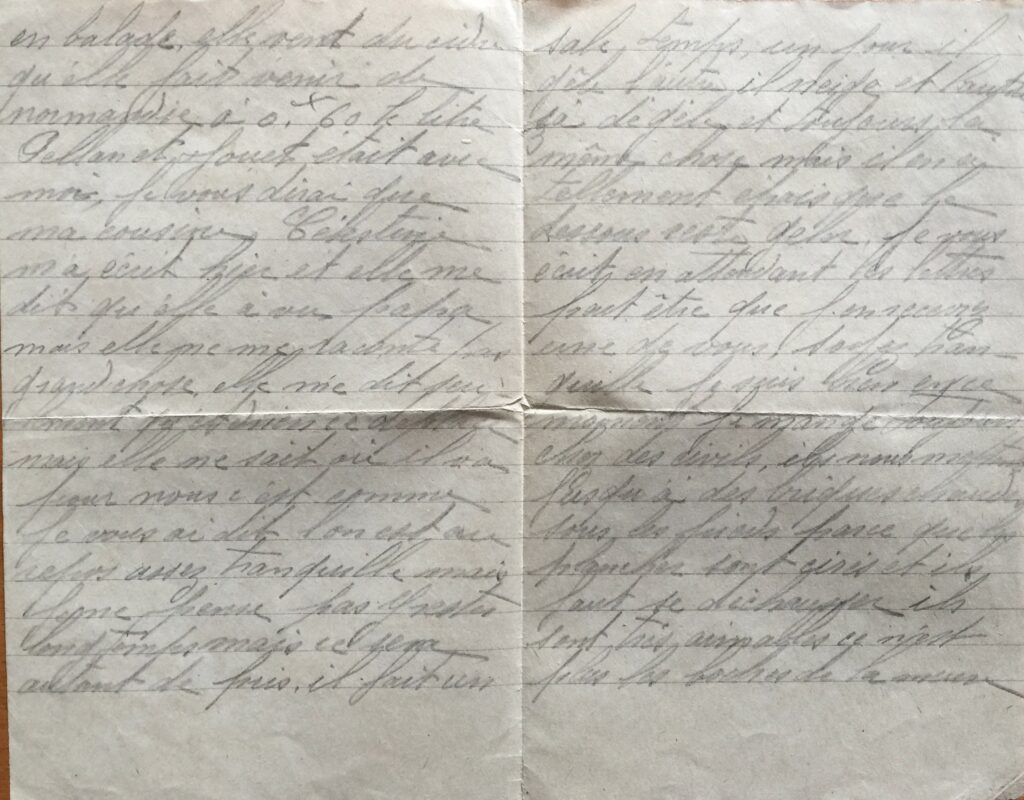 en balade, elle vent du cidre
qu'elle fait venir de
normandie à 0,60 le litre
Pellan et Jouet, était avec
moi, Je vous dirai que
ma cousine, Célestine
m'a écrit hier et elle me
dit qu'elle à vu papa
mais elle ne me raconte pas
grand chose, elle me dit
mais elle ne sait où il va
pour nous c'est comme
Je vous ai dit l'on est au
repos assez tranquille mais
pense pas y rester
longtemps mais ce sera
autant de pris. il fait un
sale temps, un jour il
gèle l'autre il neige et
sa dégèle et toujours la
même chose mais il en a
tellement épais que le
dessous reste gelé. Je vous
écrit en attendant les lettres
peut être que j'en recevrai
une de vous,
Je suis bien
Je mange
chez des civils, ils nous mettent
jusqu'à des briques chaudes
sous les pieds parce que les
planches sont cirés et ils
faut se déchausser ils
sont très aimables ce n'est
pas les boches de la meuse